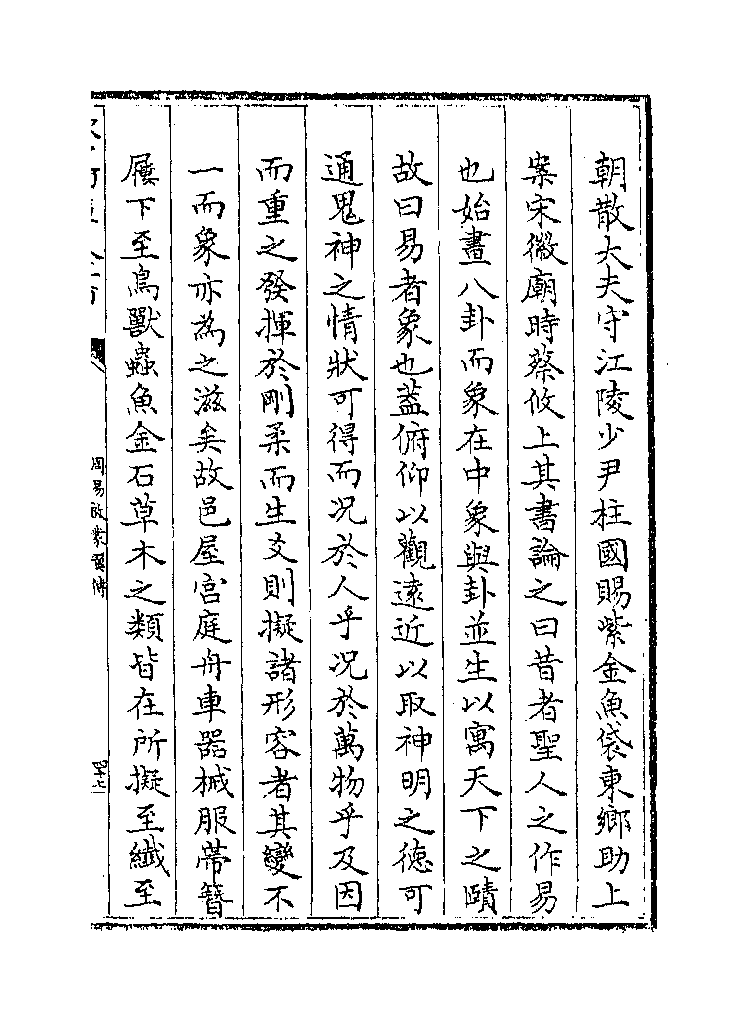 朝散大夫守江陵少尹柱國賜紫金魚袋東鄉助上
案宋徽廟時蔡攸上其書論之曰昔者聖人之作易
也始畫八卦而象在中象與卦並生以寓天下之賾
故曰易者象也蓋俯仰以觀遠近以取神明之德可
通鬼神之情狀可得而況於人乎況於萬物乎及因
而重之發揮於剛柔而生爻則擬諸形容者其變不
一而象亦為之滋矣故邑屋宮庭舟車器械服帶簪
屨下至鳥獸蟲魚金石草木之類皆在所擬至纖至
周易啟蒙翼傳
四十七